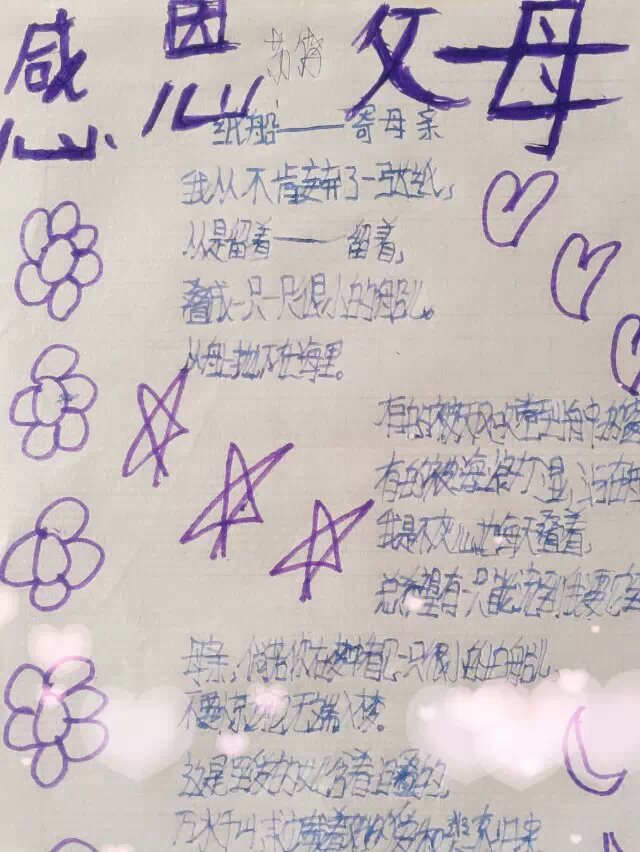 感恩父母
纸船——寄母亲
我从不肯妄弃了一张纸,
从是留着——留着,
叠成一只一只很小的船儿。
从舟上抛下在海里。
有的被天风吹
有的被海浪打湿,
我是不灰心地每天叠着,
总希望有一只能流到我要它
母亲,倘若你在梦中看见一只很小的白船儿,
不要惊讶它无端入梦。
这是至爱的女儿含着泪叠的,
万水千山求它载着